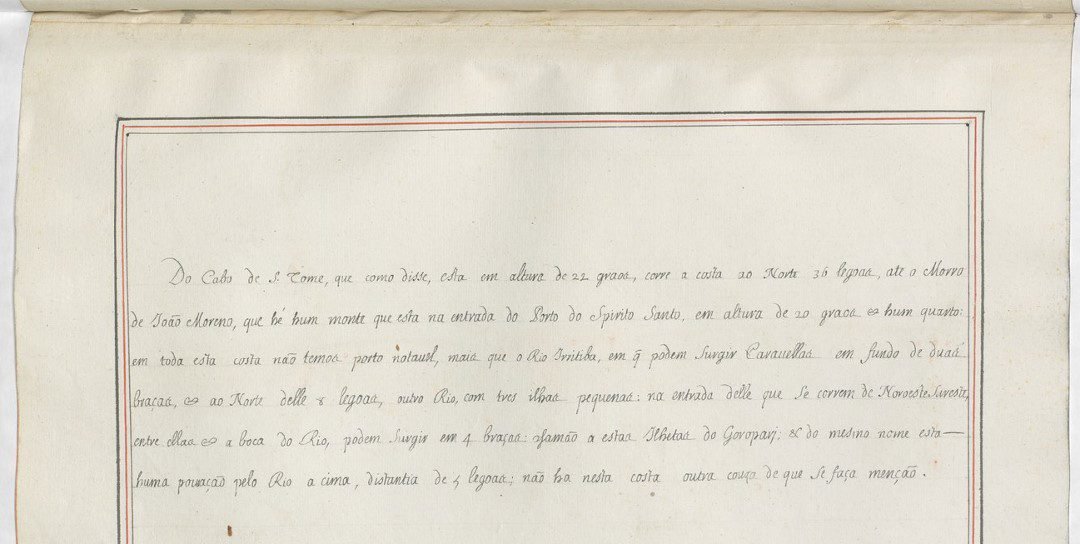 Do Cabo de S. Tome, que como disse, esta em altura de 22 graos, corre a costa ao Norte 36 legoas, ate o Morro
de João Moreno, que hé hum monte que esta na entrada do Porto do Spirito Santo, em altura de 20 graos & hum quarto:
em toda esta costa não temos porto notauel, mais que o Rio Irritiba, em q̃ podem surgir Carauellas em fundo de duas
braças, & ao Norte delle 8 legoas, outro Rio, com tres ilhas pequenas: na entrada delle que se correm de Noroeste Sueste,
entre ellas & a boca do Rio, podem surgir em 4 braças: chamão a estas Ilhetas do Goropari; & do mesmo nome esta
huma pouoação pelo Rio a cima, distantia de 5 legoas; não ha nesta costa outra couza de que se faça menção.